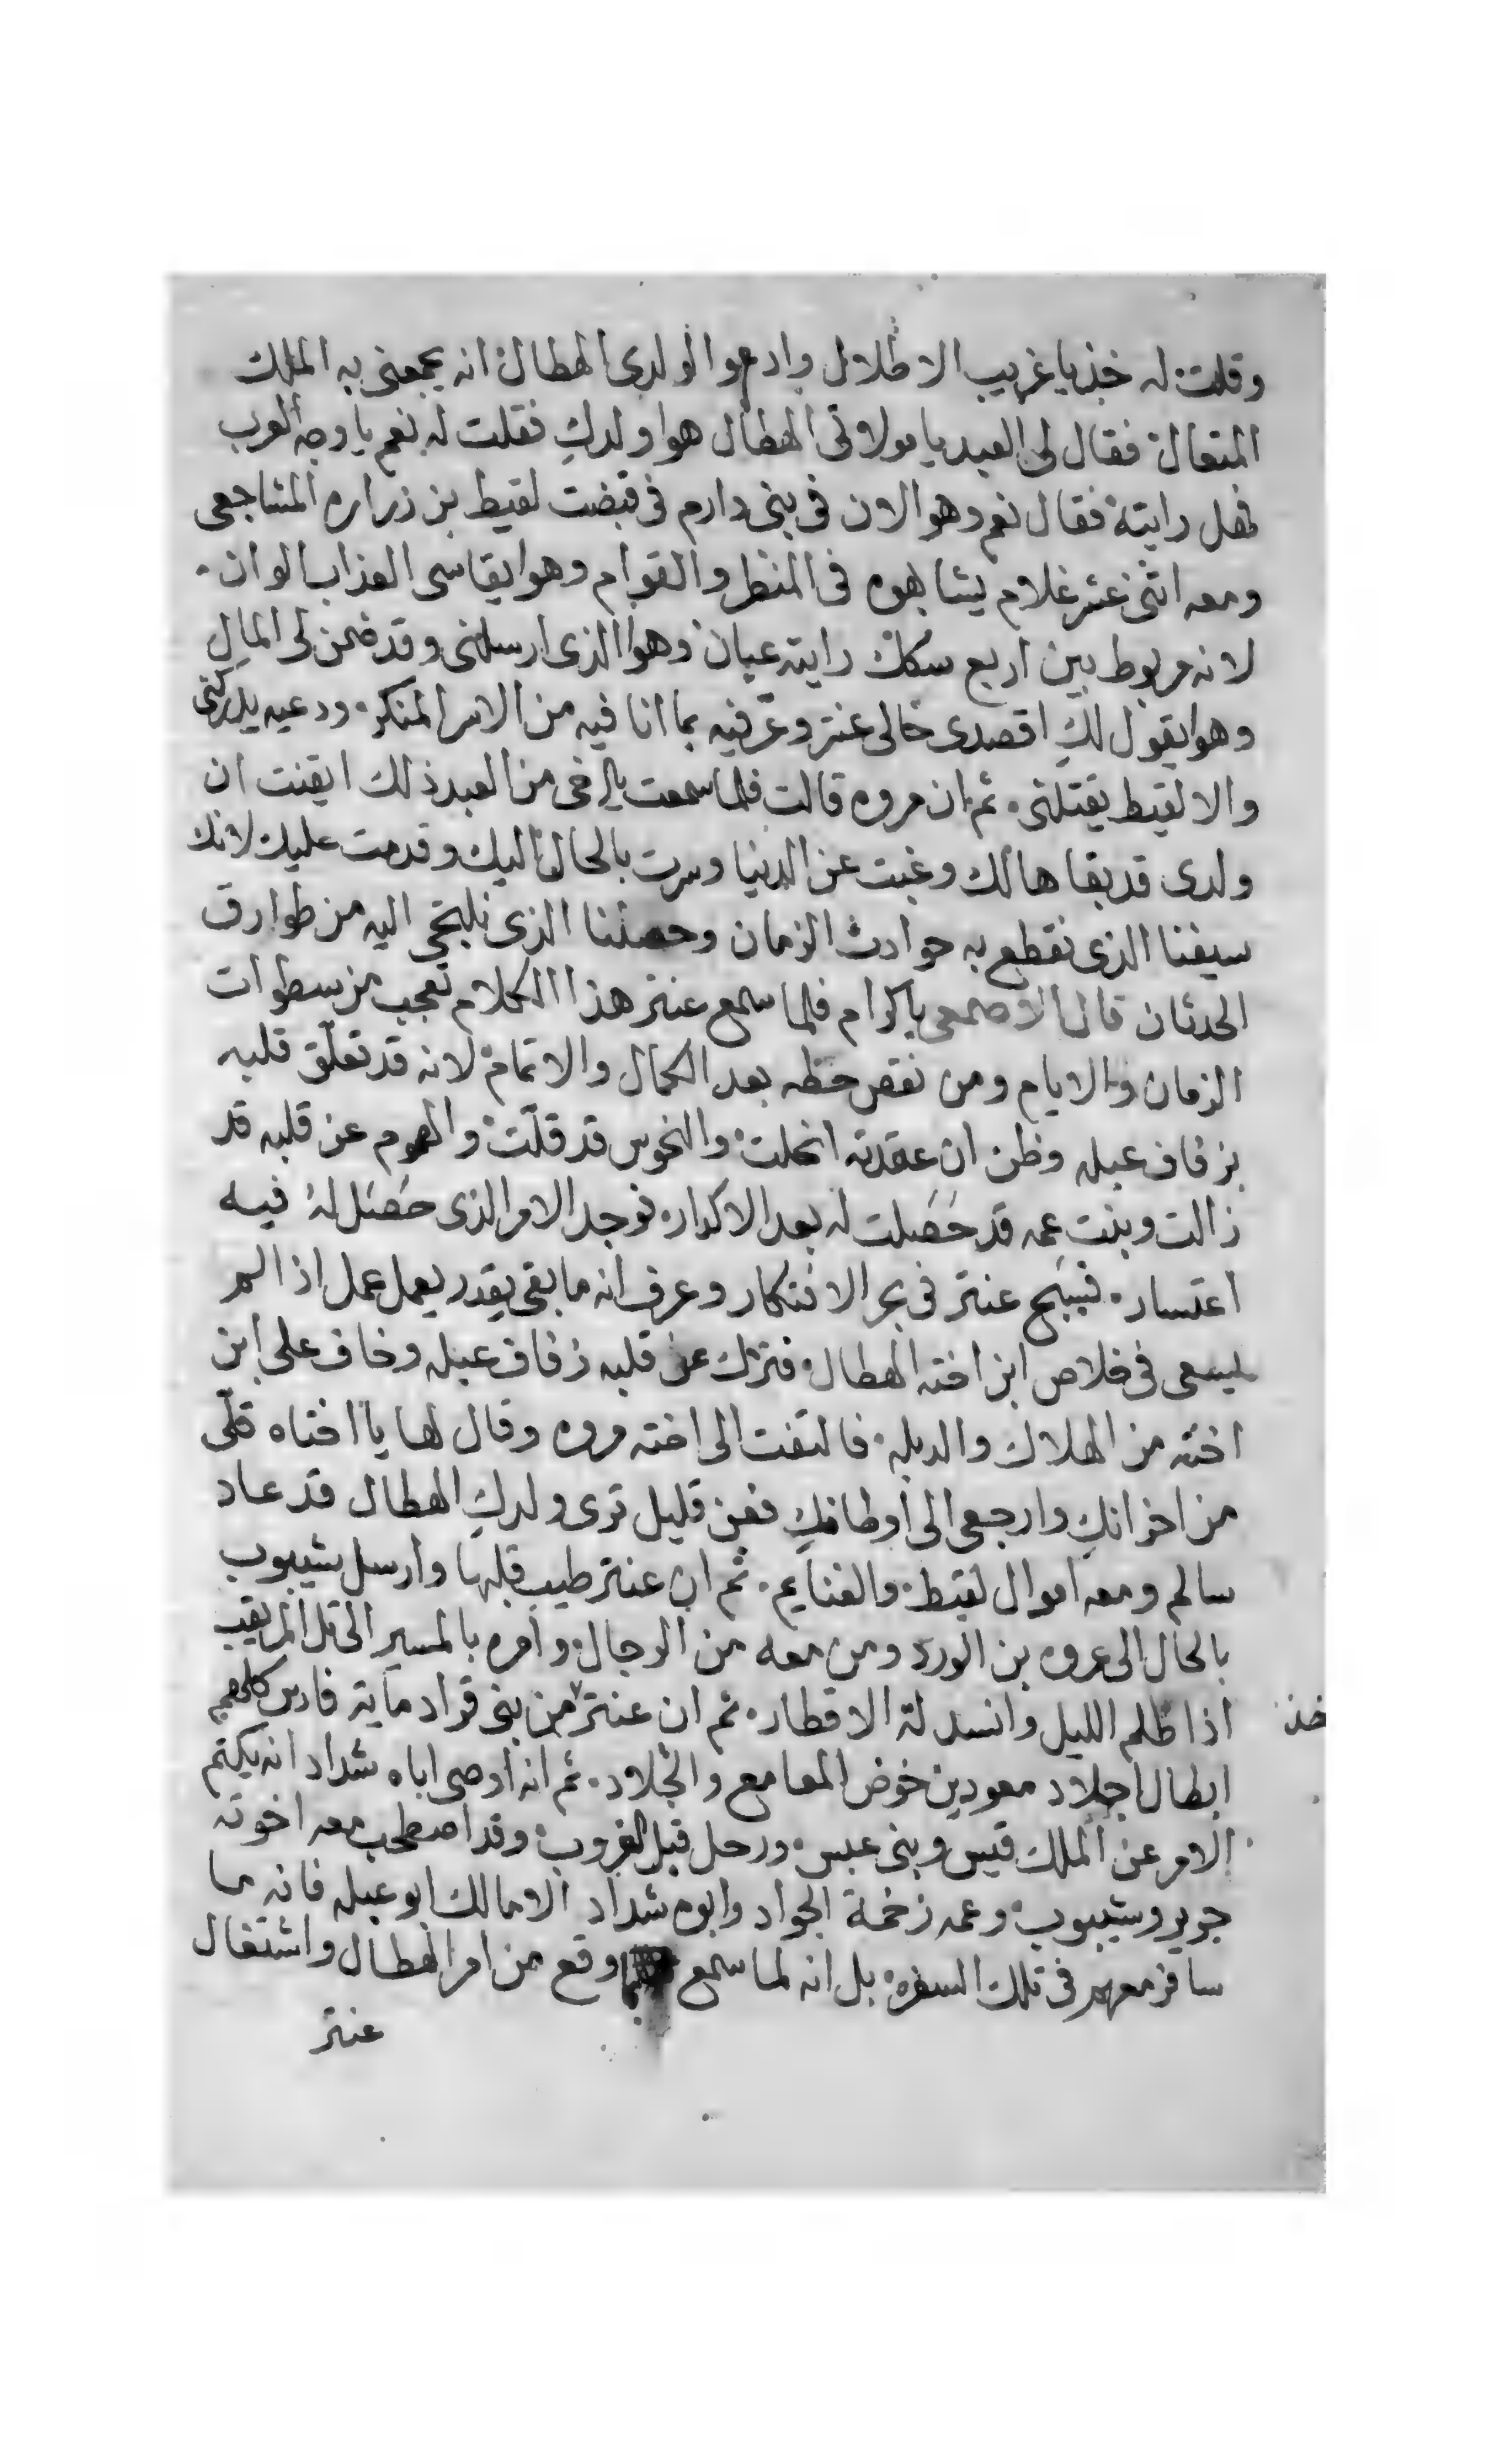 وقلت له خذ يا غريب الاطلال وادعوا لولدى الهطال انه يجمعنى به الملك
المتعال فقال لى العبد يا مولاتى الهطال هوا ولدكِ فقلت له نعم يا وجه العرب
فهل رايته فقال نعم وهو الان فى بنى دارم فى قبضت لقيط بن زراره المشاجعى
ومعه اثنى عشر غلام يشابهوه فى المنظر والقوام وهوا يقاسى العذاب الوان
لانه مربوط بين اربع سكك رايته عيان وهوا الذى ارسلنى وقد ضمن لى المال
وهوا يقول لكِ اقصدى خالى عنتر وعرّفيه بما انا فيه من الاسر المنكر ودعيه يدركنى
والا لقيط يقتلنى ثم ان مروه قالت فلما سمعت يا اخى من العبد ذلك ايقنت ان
ولدى قد بقا هالك وغبت عن الدنيا وسرت بالحال اليك وقدمت عليك لانك
سيفنا الذى نقطع به حوادث الزمان وحصننا الذى نلتجى اليه من طوارق
الحدثان قال الاصمعى يا كرام فلما سمع عنتر هذا الكلام تعجب من سطوات
الزمان والايام ومن نقص حظه بعد الكمال والاتمام لانه قد تعلّق قلبه
بزفاف عبله وظن ان عقدته انحلت والنحوس قد قلّت والهموم عن قلبه قد
زالت وبنت عمه قد حَصَلت له بعد الاكدار فوجد الامر الذى حَصَل لهُ فيه
اعتسار فسَبح عنتر فى بحر الافتكار وعرف انه ما بقى يقدر يعمل عمل اذا لم
يسعى فى خلاص ابن اخته الهطال فترك عن قلبه زفاف عبله وخاف على ابن
اخته من الهلاك والدبله فالتفت الى اخته مروه وقال لها يا اختاه قلّى
من احزانكِ وارجعى الى اوطانكِ فعن قليل ترى ولدكِ الهطال قد عاد
سالم ومعه اموال لقيط والغنايم ثم ان عنتر طيب قلبها وارسل شيبوب
بالحال الى عروه بن الورد ومن معه من الرجال وامره بالمسير الى تل المريقب
اذا ظلم الليل وانسدلة الاقطار ثم ان عنتر من بنى قراد ماية فارس كلهم
خذ
ابطال اجلاد معودين خوض المعامع والجلاد ثم انه اوصى اباه شداد انه يكتم
الامر عن الملك قيس وبنى عبس ورحل قبل الغروب وقد اصطحب معه اخوته
جرير وشيبوب وعمه زخمة الجواد وابوه شداد الا مالك ابو عبله فانه ما
سافر معهم فى تلك السفره بل انه لما سمع بما وقع من امر الهطال واشتغال
عنتر